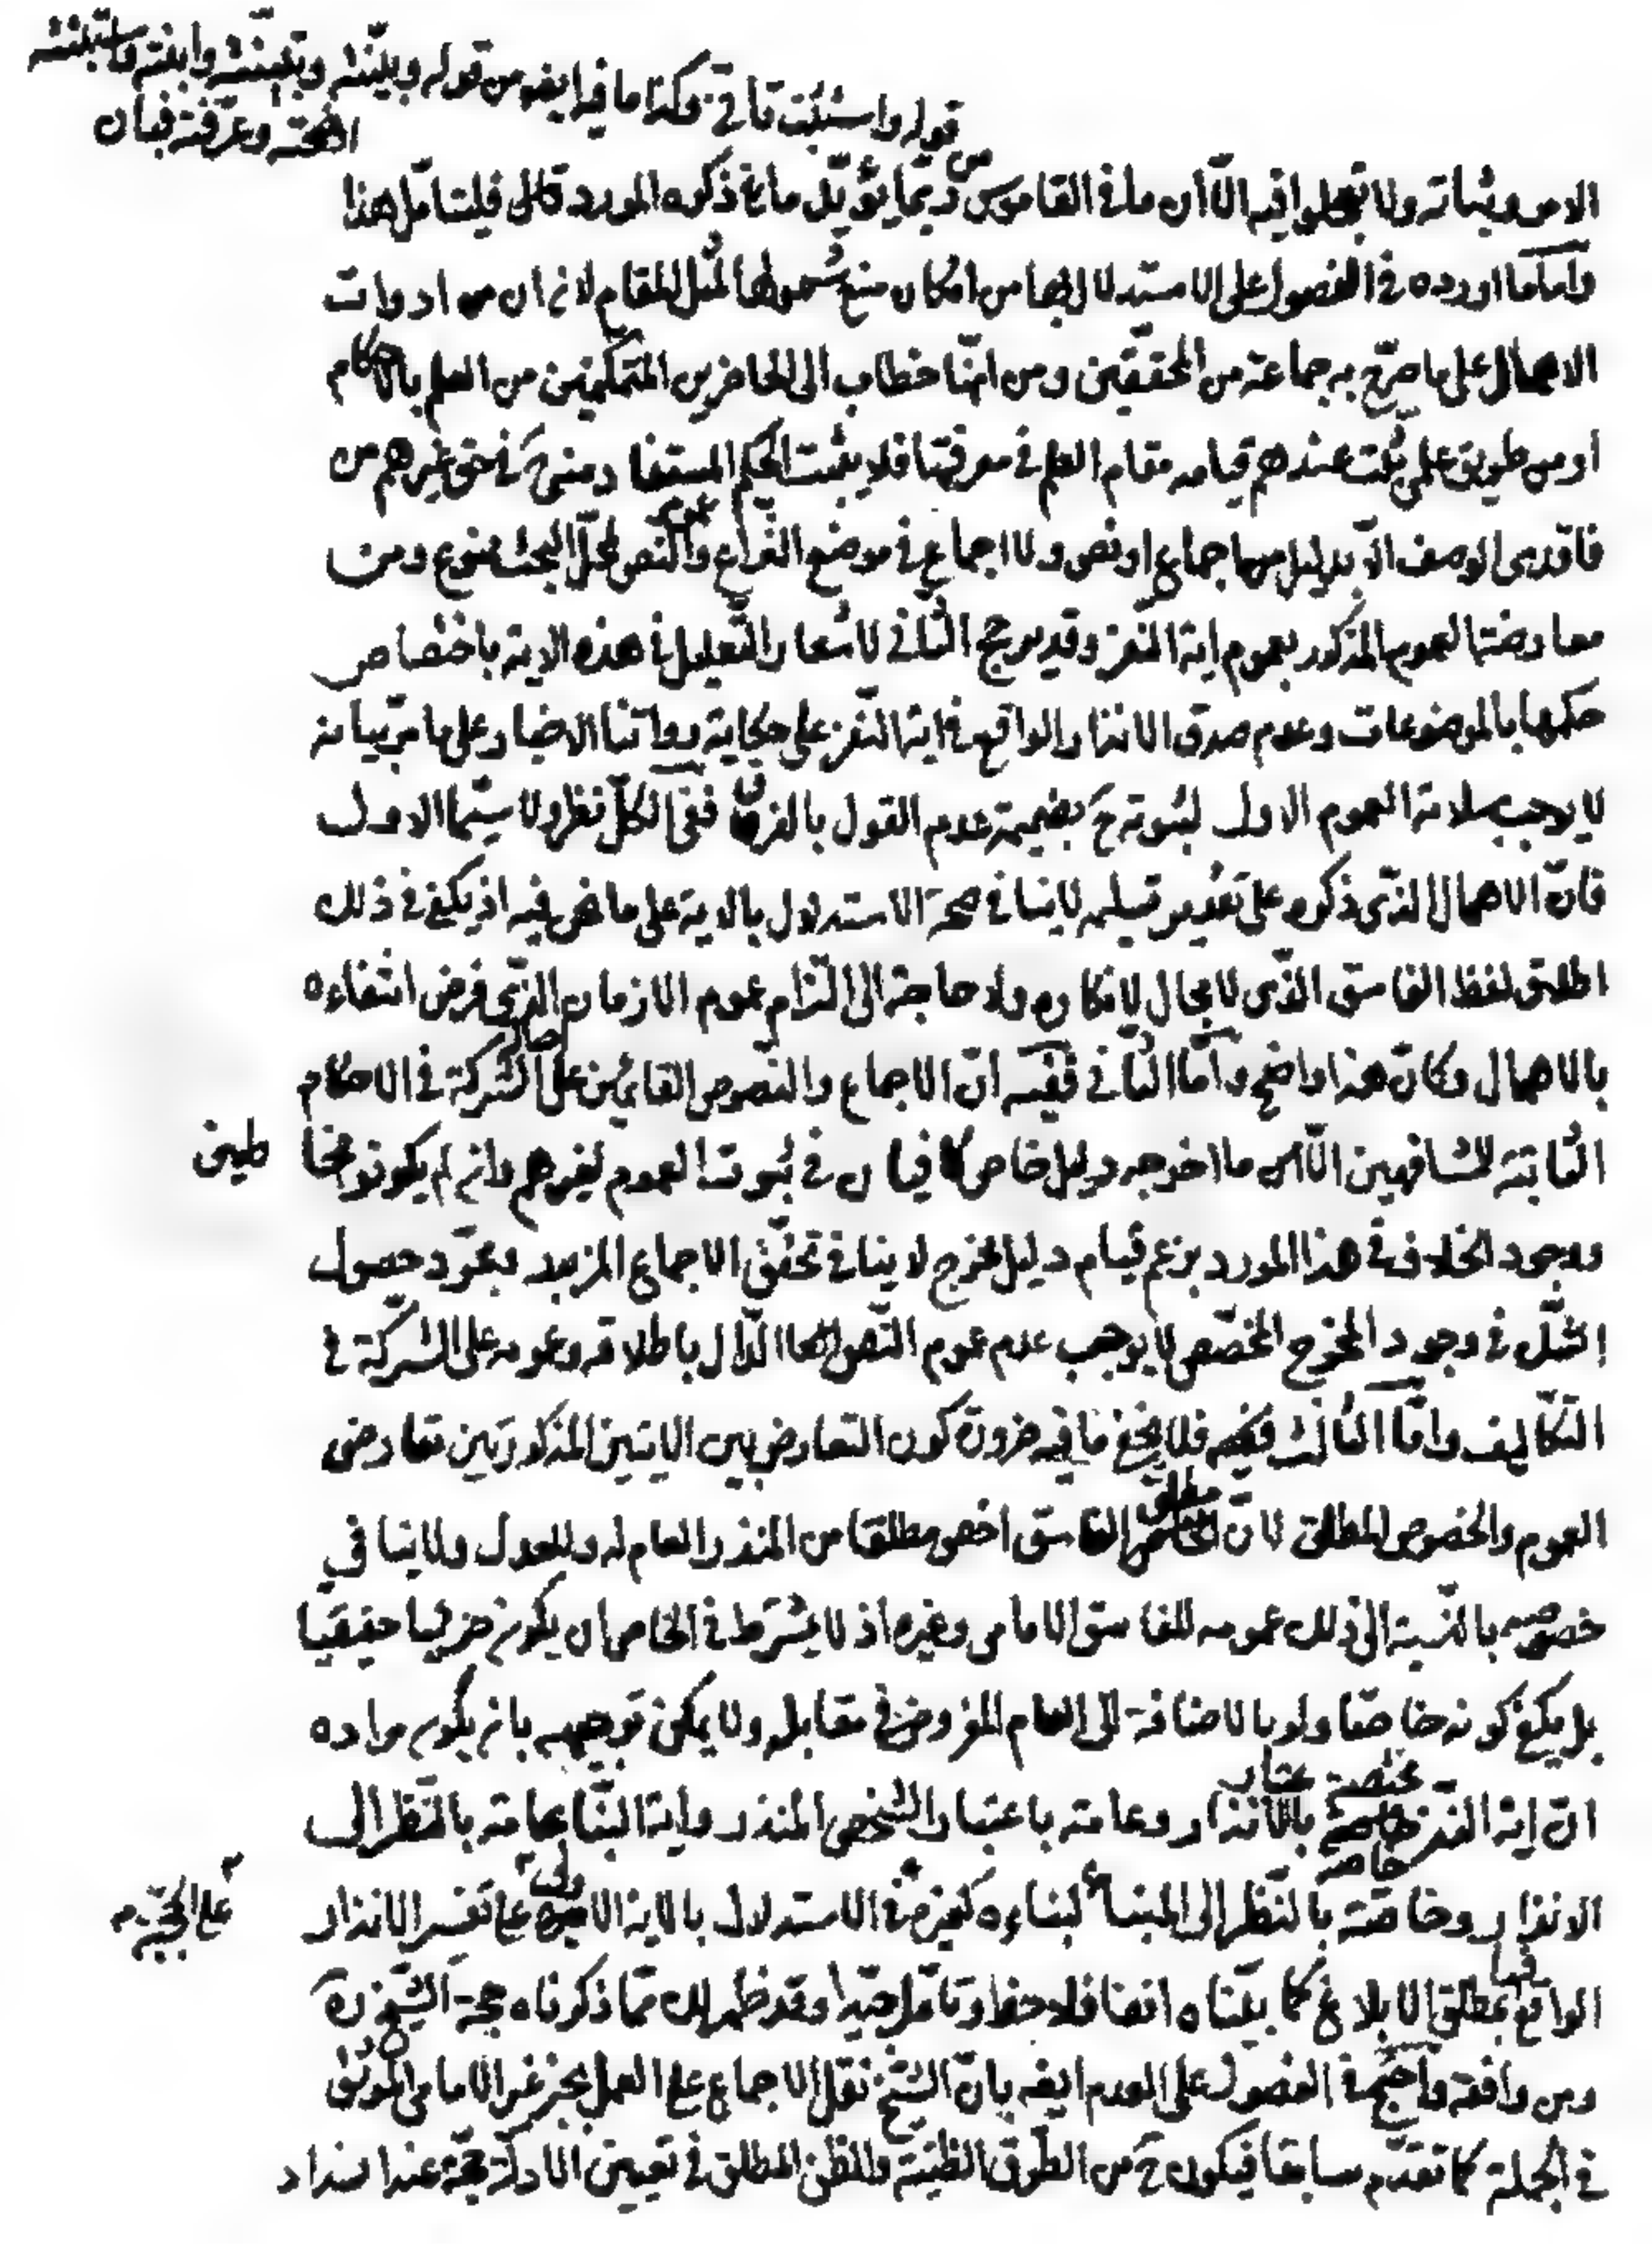 قوله واستثبت تأني وكذا ما فيه ايضا من قوله وبينته وتبينته وابنته واستبنته
اوضحته وعرفته فبان
الامر وثباته ولا تعجلوا فيه الّا أن ما في القاموس من ربّما يؤيّد ما ذكره المورد قال فليتامّل هذا
وامّا ما اورده في الفصول على الاستدلال بها من امكان منع شمولها لمثل المقام لانّ ان من ادوات
الاهمال على ما صرّح به جماعة من المحققين ومن انّها خطاب الى الحاضرين المتمكنين من العلم بالاحكام
او من طريق علمي ثبت عندهم قيامه مقام العلم في معرفتها فلا يثبت الحكم المستفاد منه في حق غيرهم من
فاقدي الوصف الّا بدليل من اجماع او نص ولا اجماع في موضع النزاع وعموم النص لمحل البحث ممنوع ومن
معارضة العموم المذكور بعموم اية النفر وقد يرجح الثاني لاشعار التعليل في هذه الاية باختصاص
حكمها بالموضوعات وعدم صدق الانذار الواقع في اية النفر على حكاية رواتنا الاخبار على ما مرّ بيانه
لا يوجب سلامة العموم الاول لثبوته ح بضميمة عدم القول بالفرق ففي الكلّ نظر ولا سيّما الاول
فانّ الاهمال الذي ذكره على تقدير تسليمه لا ينافي صحة الاستدلال بالاية على ما نحن فيه اذ يكفي في ذلك
اطلاق لفظ الفاسق الذي لا مجال لانكاره ولا حاجة الى التزام عموم الازمان الذي فرض انتفاءه
بالاهمال وكانّ هذا واضح وامّا الثاني ففيه انّ الاجماع والنصوص القائمين على اصالة الشركة في الاحكام
الثابتة للمشافهين الّا ما اخرجه دليل خاص كافيان في ثبوت العموم لغيرهم وان لم يكونوا مخاطبين
ووجود الخلاف في هذا المورد بزعم قيام دليل المخرج لا ينافي تحقق الاجماع المزبور ومجرّد حصول
الشك في وجود المخرج المخصّص لا يوجب عدم عموم النصّ العام الدّال باطلاقه وعمومه على الشركة في
التكاليف وامّا الثالث فلا يخفى ما فيه ضرورة كون التعارض بين الايتين المذكورتين تعارض
العموم والخصوص المطلق لانّ مطلق الفاسق اخص مطلقا من المنذر العام له وللعدل ولا ينافي
خصوصه بالنسبة الى ذلك عمومه للفاسق الامامي وغيره اذ لا يشترط في الخاص ان يكون جزئيا حقيقيا
بل يكفي كونه خاصا ولو بالاضافة الى العام المفروض في مقابله ولا يمكن توجيهه بان يكون مراده
انّ اية النفر مختصة خاصة باعتبار الانذار وعامة باعتبار الشخص المنذر واية النبا عامة بالنظر الى
الانذار وخاصة بالنظر الى المنبأ لبناءه كغيره في الاستدلال بالاية الاولى على الحجية على تفسير الانذار
الواقع فيها بمطلق الابلاغ كما بيّناه انفا فلاحظ وتامّل جيّدا وقد ظهر لك ممّا ذكرناه حجة الشيخ ره
ومن وافقه واحتج في الفصول على العدم ايضا بانّ الشيخ نقل الاجماع على العمل بخبر غير الامامي الموثق
في الجملة كما تقدّم سابقا فيكون ح من الطرق الظنية والظن المطلق في تعيين الادلة حجة عند انسداد